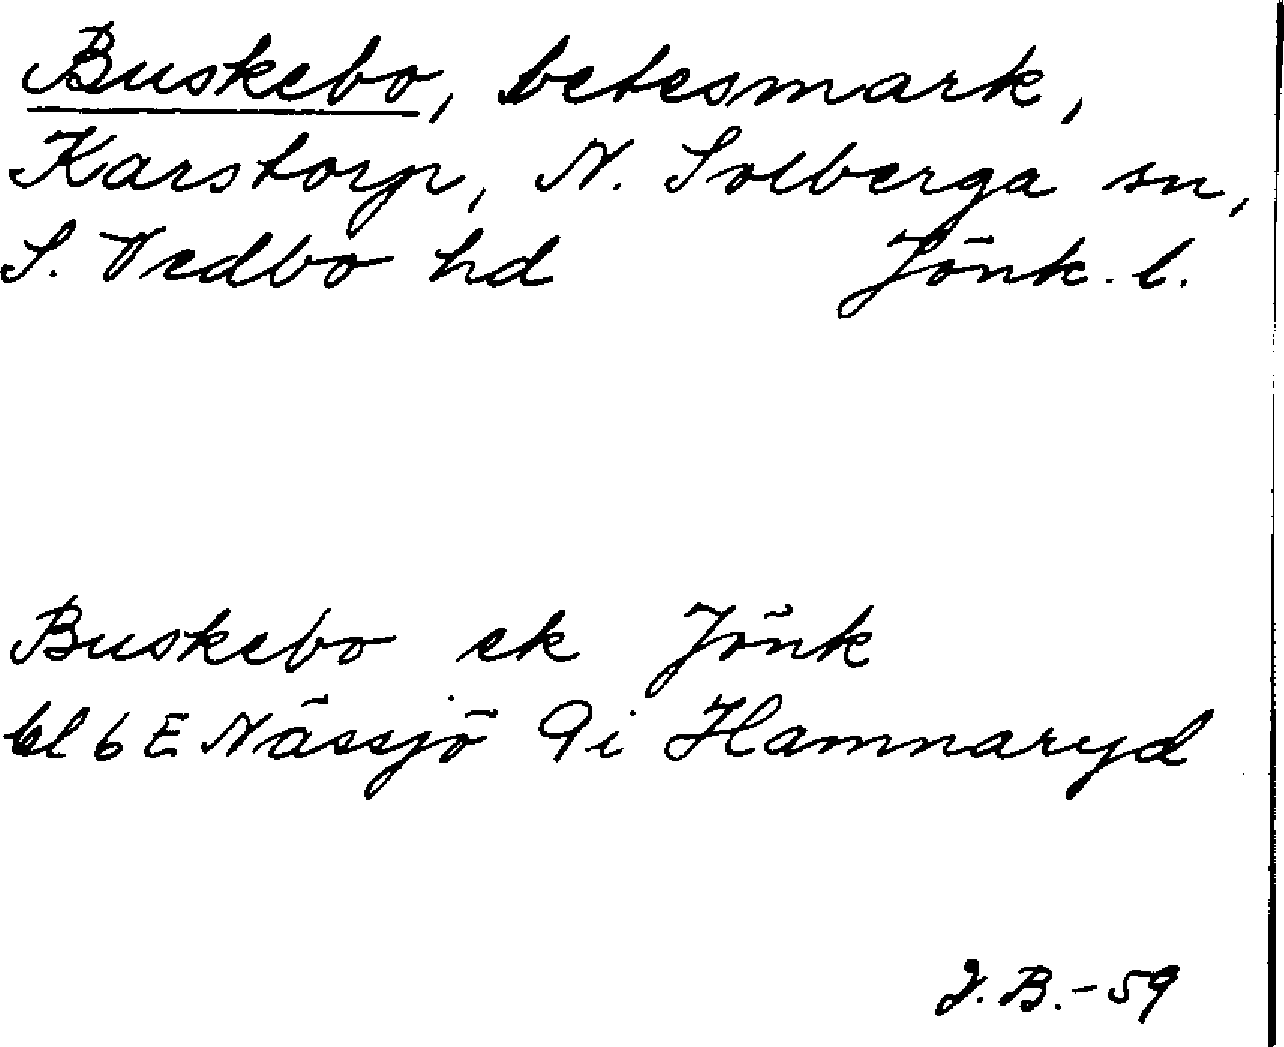 Buskebo, betesmark,
Karstorp, N. Solberga sn,
S. Vedbo hd Jönk. l.
Buskebo ek Jönk
bl 6 E Nässjö 9i Hamnaryd
J.B.-59